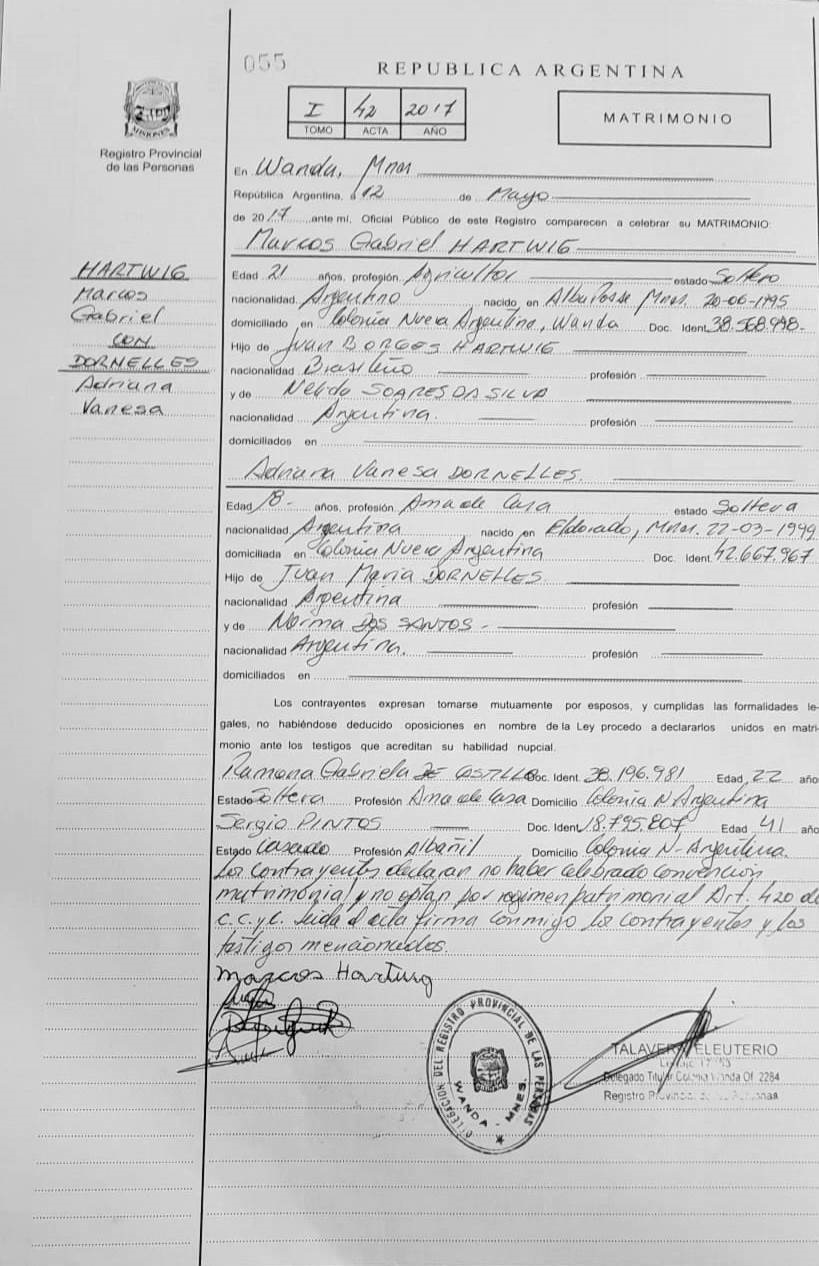 055
REPUBLICA ARGENTINA
I 42 2017
TOMO ACTA AÑO
MATRIMONIO
MISIONES
Registro Provincial
de las Personas
En Wanda, Mnes
República Argentina, a 12 de Mayo
de 2017 ante mí, Oficial Público de este Registro comparecen a celebrar su MATRIMONIO:
Marcos Gabriel HARTWIG
HARTWIG
Marcos
Gabriel
CON
DORNELLES
Adriana
Vanesa
Edad 21 años, profesión Agricultor estado Soltero
nacionalidad Argentino nacido en Alba Posse Mnes. 20-06-1995
domiciliado en Colonia Nueva Argentina, Wanda Doc. Ident. 38.568.998-
Hijo de Juan BORGES HARTWIG
nacionalidad Brasileño profesión
y de Nelida SOARES DA SILVA
nacionalidad Argentina. profesión
domiciliados en
Adriana Vanesa DORNELLES.
Edad 18- años, profesión Ama de Casa estado Soltera
nacionalidad Argentina nacido en Eldorado, Mnes. 22-03-1999
domiciliada en Colonia Nueva Argentina Doc. Ident. 42.667.967
Hijo de Juan Maria DORNELLES
nacionalidad Argentina profesión
y de Norma DOS SANTOS -
nacionalidad Argentina. profesión
domiciliados en
Los contrayentes expresan tomarse mutuamente por esposos, y cumplidas las formalidades le-
gales, no habiéndose deducido oposiciones en nombre de la Ley procedo a declararlos unidos en matri-
monio ante los testigos que acreditan su habilidad nupcial.
Ramona Gabriela DE CASTILLO Doc. Ident. 38.196.981 Edad 22 año
Estado Soltera Profesión Ama de Casa Domicilio Colonia N Argentina
Sergio PINTOS Doc. Ident. 18.795.807 Edad 41 año
Estado Casado Profesión Albañil Domicilio Colonia N- Argentina.
Los contrayentes declaran no haber celebrado convención
matrimonial y no optan por regimen patrimonial Art. 420 de
C.C. y C. Leida el acta firma conmigo los contrayentes y los
testigos mencionados.
Marcos Hartwig
DELEGACION DEL REGISTRO PROVINCIAL DE LAS PERSONAS
WANDA - MNES.
TALAVERA ELEUTERIO
Delegado Titular Colonia Wanda Of. 2284
Registro Provincial de las Personas